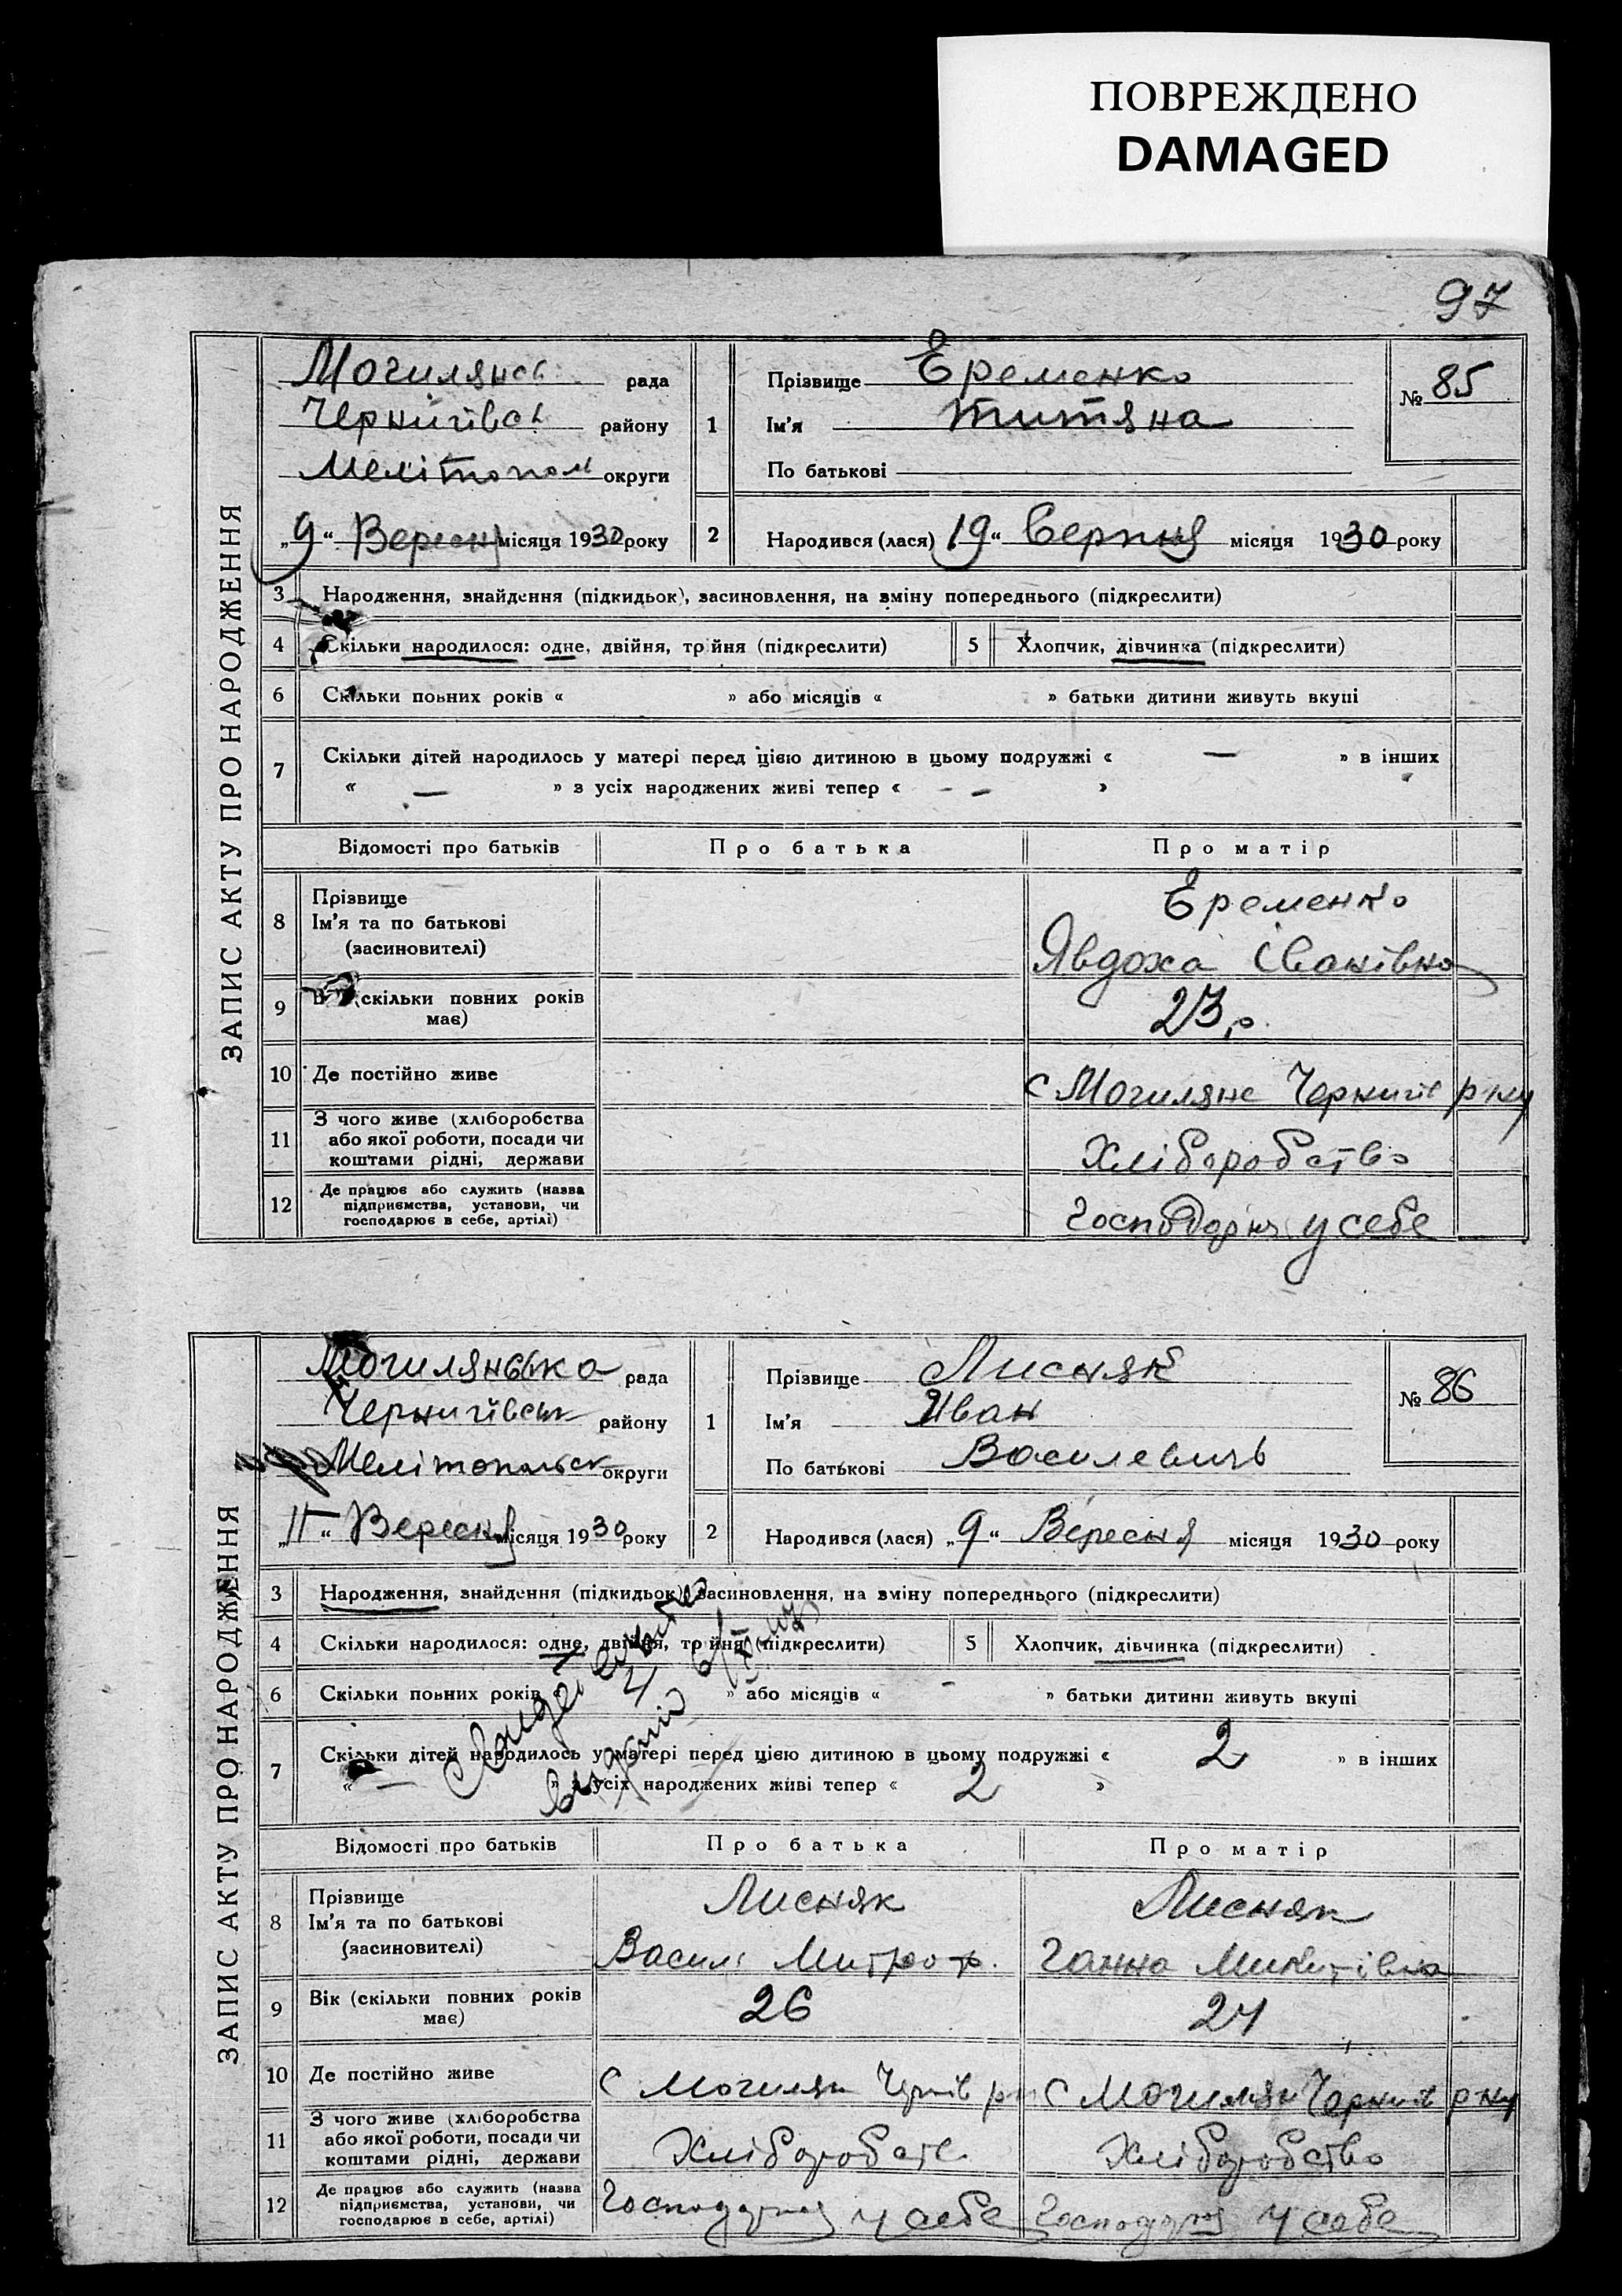 ПОВРЕЖДЕНО
DAMAGED
97
ЗАПИС АКТУ ПРО НАРОДЖЕННЯ
Могилянсь рада
Чернигівсь району
Мелітопол округи
„9“ Вересня місяця 1930 року
1
Прізвище Єременко
Ім'я Титяна
По батькові
№ 85
2
Народився (лася) „19“ Серпня місяця 1930 року
3 Народження, знайдення (підкидьок), засиновлення, на зміну попереднього (підкреслити)
4 Скільки народилося: одне, двійня, трійня (підкреслити)
5 Хлопчик, дівчинка (підкреслити)
6 Скільки повних років « » або місяців « » батьки дитини живуть вкупі
7 Скільки дітей народилось у матері перед цією дитиною в цьому подружжі « — » в інших
« — » з усіх народжених живі тепер « - - »
Відомості про батьків Про батька Про матір
8 Прізвище
Ім'я та по батькові
(засиновителі)
Єременко
Явдоха Іванівна
9 (скільки повних років
має)
23 р.
10 Де постійно живе
с Могиляне Чернигів р-ну
11 З чого живе (хліборобства
або якої роботи, посади чи
коштами рідні, держави
Хліборобство
12 Де працює або служить (назва
підприємства, установи, чи
господарює в себе, артілі)
Господарня у себе
ЗАПИС АКТУ ПРО НАРОДЖЕННЯ
Могилянська рада
Чернигівськ району
Мелітопольск округи
„11“ Вересня місяця 1930 року
1
Прізвище Лисняк
Ім'я Иван
По батькові Василевичь
№ 86
2
Народився (лася) „9“ Вересня місяця 1930 року
3 Народження, знайдення (підкидьок), засиновлення, на зміну попереднього (підкреслити)
4 Скільки народилося: одне, двійня, трійня (підкреслити)
5 Хлопчик, дівчинка (підкреслити)
6 Скільки повних років « 4 » або місяців « - » батьки дитини живуть вкупі
7 Скільки дітей народилось у матері перед цією дитиною в цьому подружжі « 2 » в інших
« — » з усіх народжених живі тепер « 2 »
Відомості про батьків Про батька Про матір
8 Прізвище
Ім'я та по батькові
(засиновителі)
Лисняк
Василь Митроф.
Лисняк
Ганна Микитівна
9 Вік (скільки повних років
має)
26
24
10 Де постійно живе
с Могилян р-н
с Могилян Чернигів р-ну
11 З чого живе (хліборобства
або якої роботи, посади чи
коштами рідні, держави
Хліборобств.
Хліборобство
12 Де працює або служить (назва
підприємства, установи, чи
господарює в себе, артілі)
Господарня у себе
Господарня у себе